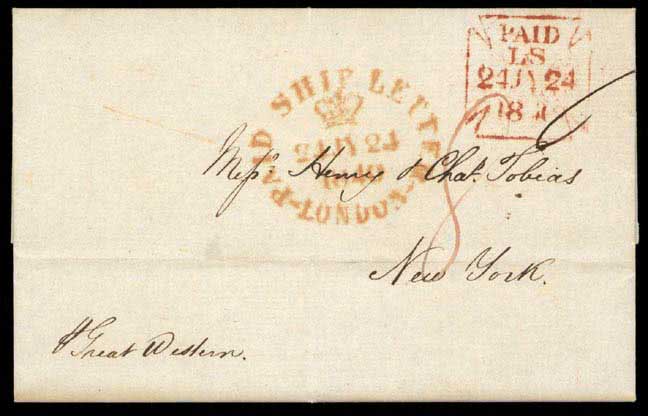 PAID
LS
24 JY 24
PAID SHIP LETTER
24 JY 24
LONDON
8
Messrs. Henry & Chas. Tobias
New York.
Great Western.